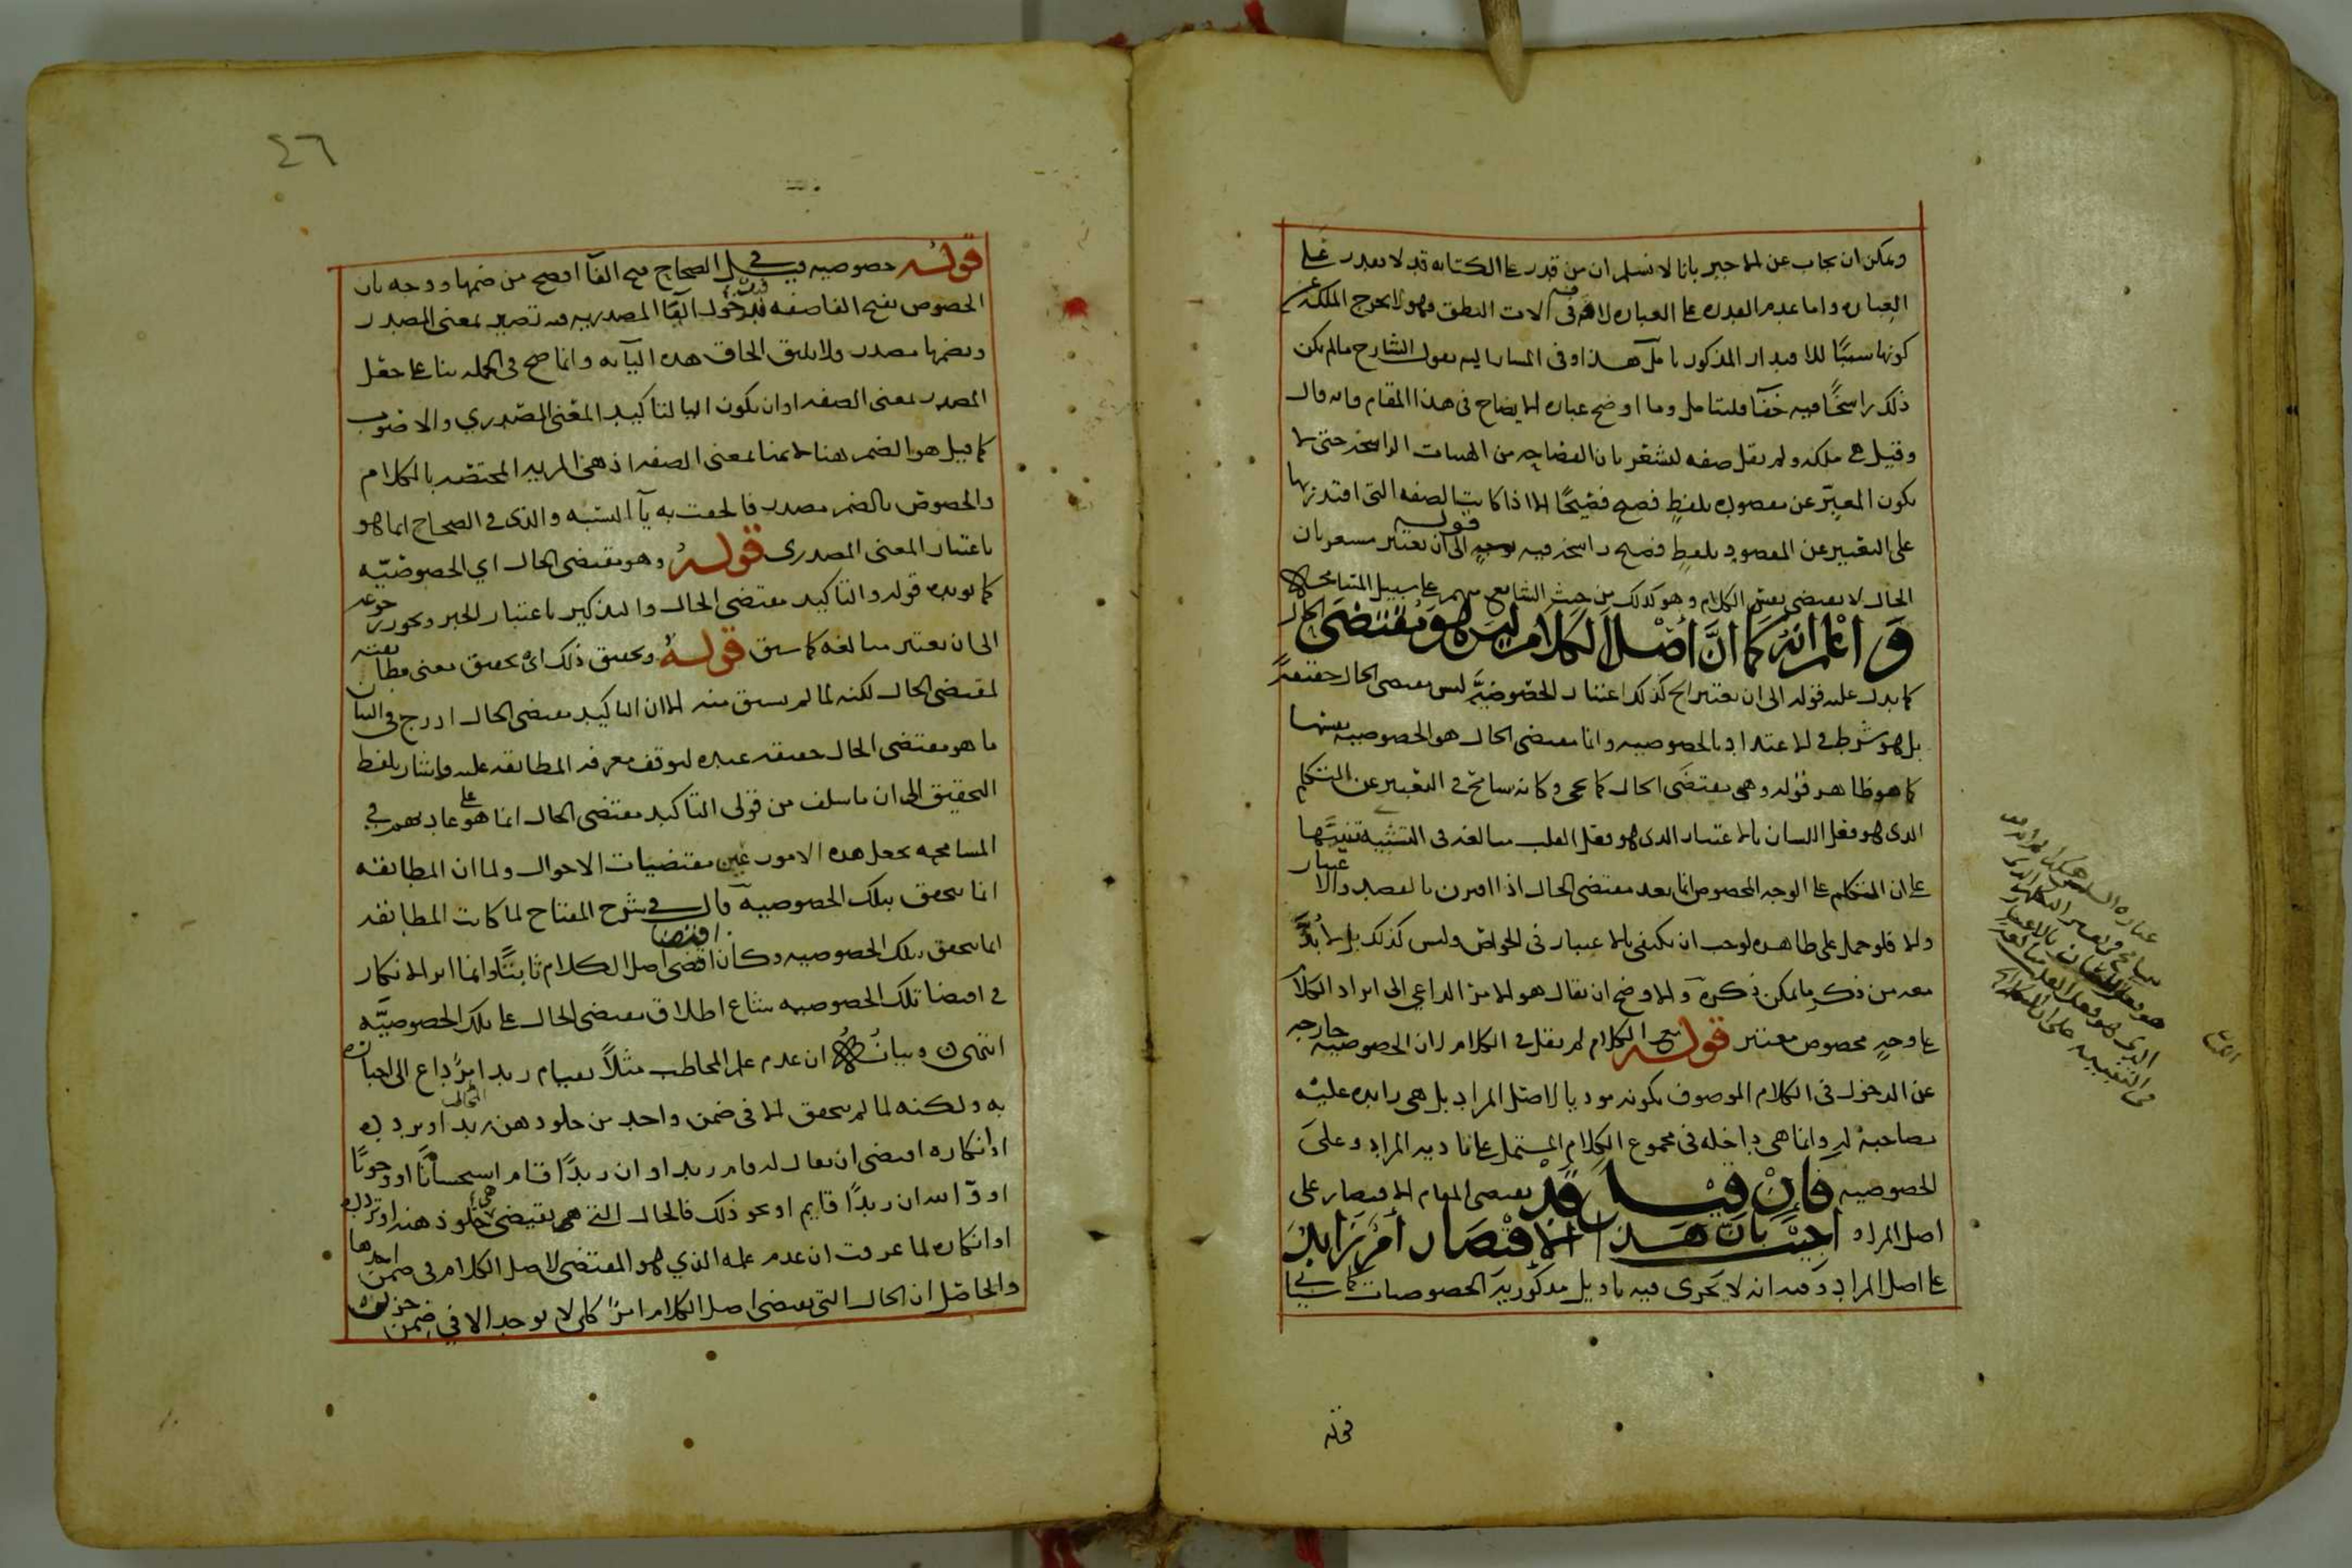 ويمكن ان يجاب عن الاخير بانا لا نسلم ان من قدر على الكتابه قد لا يقدر على
العباره واما عدم القدره على العباره لافة في الات النطق فهو لا يخرج الملكة عن
كونها سببًا للاقتدار المذكور تأمل هذا وفي المسار اليه بقول الشارح مالم يكن
ذلك راسخًا فيه خفآ فليتامل وما اوضح عباره الايضاح في هذا المقام فانه قال
وقيل هي ملكه ولم يقل صفه ليشعر بان الفصاحه من الهيات الراسخه حتى لا
يكون المعبّر عن مقصوده بلفظٍ فصيح فصيحًا الا اذا كانت الصفه التي اقتدر بها
على التعبير عن المقصود بلفظٍ فصيح راسخه فيه قوله الى ان يعتبر مشعر بان
الحال لا يقتضي نفس الكلام وهو كذلك من حيث الشايع منهم على سبيل المسامحه
وَاعلم انه كما انَّ اصْل الكلام ليس هو مقتضى الحال
كما يدل عليه قوله الى ان يعتبر الخ كذلك اعتبار الخصوصيَّه ليس مقتضى الحال حقيقةً
بل هو شرط في الاعتداد بالخصوصيه وانما مقتضى الحال هو الخصوصيه نفسها
كما هو ظاهر قوله وهي مقتضَى الحال كما يجي وكانه سامح في التعبير عن التكلم
الذي هو فعل اللسان بالاعتبار الذي هو فعل القلب مبالغه في التنبيه
على ان التكلم على الوجه المخصوص انما يعد مقتضى الحال اذا اقترن بالقصد والاعتبار
والا فلو حمل على ظاهره لوجب ان يكتفى بالاعتبار في الخواص وليس كذلك بل لا بُدَّ
معه من ذكر ما يمكن ذكره والاوضح ان يقال هو الامر الداعي الى ايراد الكلام
على وجهٍ مخصوص معتبر قوله مع الكلام لم يقل في الكلام لان الخصوصيه خارجه
عن الدخول في الكلام الموصوف بكونه موديا لاصل المراد بل هي زايده عليه
مصاحبة له وانما هي داخله في مجموع الكلام المشتمل على تاديه المراد وعلى
الخصوصيه فَان قيل قد يقتضي المقام الاقتصار على
اصل المراد اجيب بان هذا الاقتصار امر زايد
على اصل المراد وفيه انه لا يجري فيه تاويل مذكوريه الخصوصيات كما سياتي
قوله
٤٦
قوله خصوصيه قيل في الصحاح فتح الفآ افصح من ضمها ووجه بان
الخصوص بفتح الفا صفه فبدخول اليآ المصدريه فيه تصير بمعنى المصدر
وبضمها مصدر ولا يليق الحاق هذه اليآ به وانما صح في الجمله بنا على جعل
المصدر بمعنى الصفه او ان يكون اليا لتاكيد المعنى المصدري والاصوب
كما قيل هو الضم هنا لانها بمعنى الصفه اذ هي المزيه المختصه بالكلام
والخصوص بالضم مصدر فالحقت به يآ النسبه والذي في الصحاح انما هو
باعتبار المعنى المصدري قوله وهو مقتضى الحال اي الخصوصيّه
كما يويده قوله والتاكيد مقتضى الحال والتذكير باعتبار الخبر ويجوز رجوعه
الى ان يعتبر مبالغه كما سبق قوله وتحقيق ذلك اي تحقيق معنى مطابقته
لمقتضى الحال لكنه لما لم يسبق منه الا ان التاكيد مقتضى الحال ادرج في البيان
ما هو مقتضى الحال حقيقه عنده لتوقف معرفه المطابقه عليه واشار بلفظ
التحقيق الى ان ما سلف من قولي التاكيد مقتضى الحال انما هو على عادتهم في
المسامحه بجعل هذه الامور عين مقتضيات الاحوال ولما ان المطابقه
انما تتحقق بتلك الخصوصيه قال في شرح المفتاح لما كانت المطابقه
انما تتحقق بتلك الخصوصيه وكان اقتضا اصل الكلام ثابتًا وانما اثر الانكار
في اقتضا تلك الخصوصيه شاع اطلاق مقتضى الحال على تلك الخصوصيّه
انتهى وبيانه ان عدم علم المخاطب مثلاً بقيام زيد امرٌ داع الى اخباره
به ولكنه لما لم يتحقق الا في ضمن واحد من خلو ذهن زيد او تردده
او انكاره اقتضى ان يقال له قام زيد او ان زيدًا قام استحسانًا او وجوبًا
او والله ان زيدًا قايم او نحو ذلك فالحال التي هي تقتضي خلو ذهنه او تردده
او انكاره لما عرفت ان عدم علمه الذي هو المقتضى لاصل الكلام في ضمن احدها
والحاصل ان الحال التي تقتضي اصل الكلام امرٌ كلي لا يوجد الا في ضمن